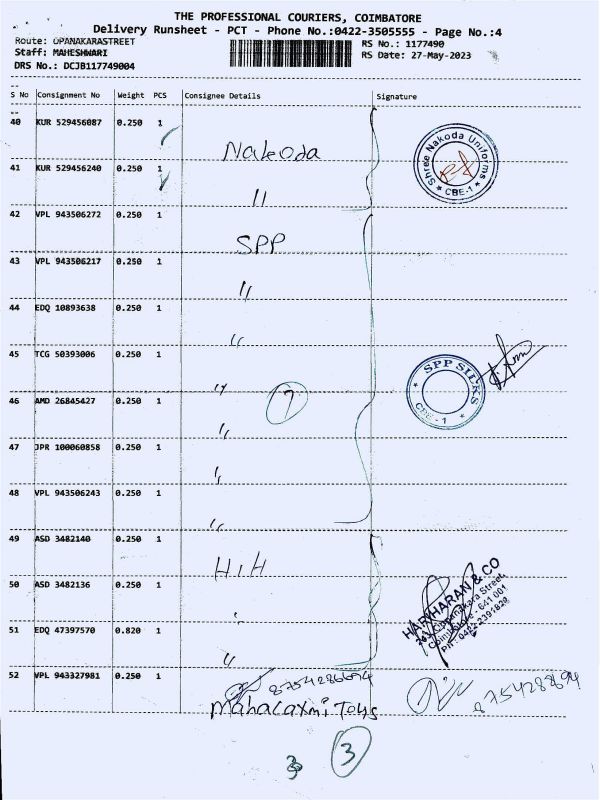 THE PROFESSIONAL COURIERS, COIMBATORE
Delivery Runsheet - PCT - Phone No.:0422-3505555 - Page No.:4
Route: OPANAKARASTREET
RS No.: 1177490
Staff: MAHESHWARI
RS Date: 27-May-2023
DRS No.: DCJB117749004
S No Consignment No Weight PCS Consignee Details Signature
40 KUR 529456087 0.250 1 Nakoda
Shree Nakoda Uniforms
* CBE-1 *
41 KUR 529456240 0.250 1 "
42 VPL 943506272 0.250 1 SPP
43 VPL 943506217 0.250 1 "
44 EDQ 10893638 0.250 1 "
45 TCG 50393006 0.250 1 "
SPP SILKS
* CBE-1 *
7
46 AMD 26845427 0.250 1 "
47 JPR 100060858 0.250 1 "
48 VPL 943506243 0.250 1 "
49 ASD 3482140 0.250 1 HIH
50 ASD 3482136 0.250 1 "
HARIHARAN & CO
Oppanakara Street,
Coimbatore - 641 001
PH: 0422-2391828
51 EDQ 47397570 0.820 1 "
52 VPL 943327981 0.250 1 8754286694
Mahalaxmi Toys
8754288694
3 3